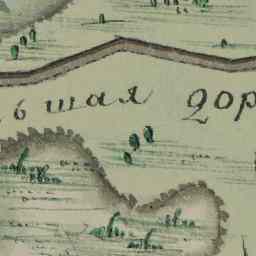 ьшая дор